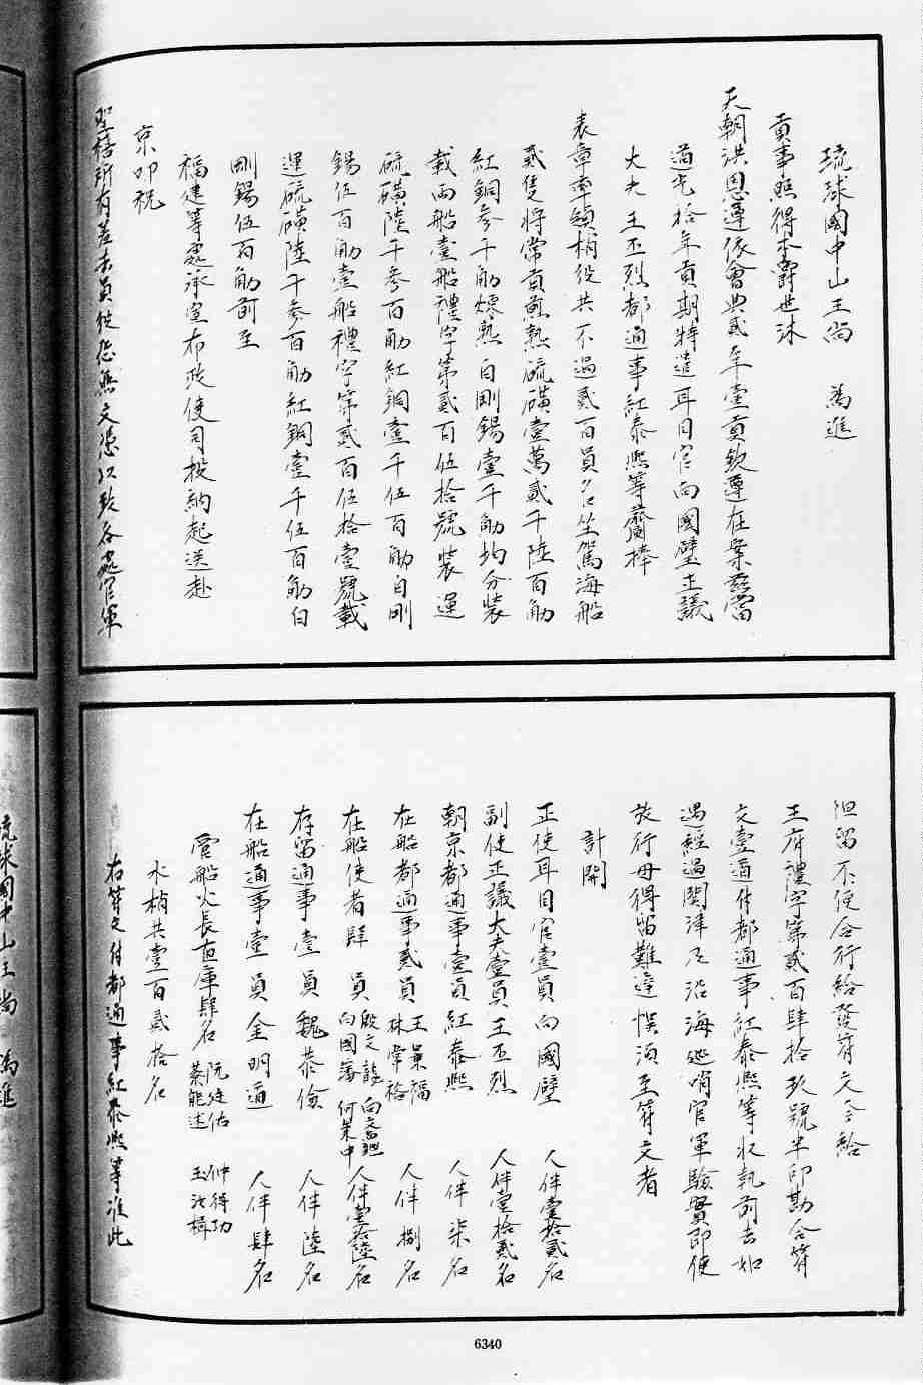 琉球國中山王尚　為進
貢事照得本爵世沐
天朝洪恩遵依會典貳年壹貢欽遵在案茲當
道光拾年貢期特遣耳目官向國璧正議
大夫王丕烈都通事紅泰熙等齎捧
表章率領梢役共不過貳百員名坐駕海船
貳隻將常貢煎熟硫磺壹萬貳千陸百觔
紅銅參千觔煉熟白剛錫壹千觔均分裝
載兩船壹船禮字第貳百伍拾號裝運
硫磺陸千參百觔紅銅壹千伍百觔白剛
錫伍百觔壹船禮字第貳百伍拾壹號載
運硫磺陸千參百觔紅銅壹千伍百觔白
剛錫伍百觔前至
福建等處承宣布政使司投納起送赴
京叩祝
聖禧所有差去員役恐無文憑以致各處官軍
阻留不便合行給發符文今給
王府禮字第貳百肆拾玖號半印勘合符
文壹道付都通事紅泰熙等收執前去如
遇經過關津及沿海巡哨官軍驗實即便
放行毋得留難遲悞須至符文者
計開
正使耳目官壹員向國璧　人伴壹拾貳名
副使正議大夫壹員王丕烈　人伴壹拾貳名
朝京都通事壹員紅泰熙　人伴柒名
在船都通事貳員王秉福林常裕　人伴捌名
在船使者肆　員殷文龍向國藩向文何秉中　人伴壹拾陸名
存留通事壹　員魏恭儉　人伴陸名
在船通事壹員金明通　人伴肆名
管船火長直庫肆名阮廷佑蔡能述　仲得功
水梢共壹百貳拾名
右符文付都通事紅泰熙等准此
琉球國中山王尚　為進
6340